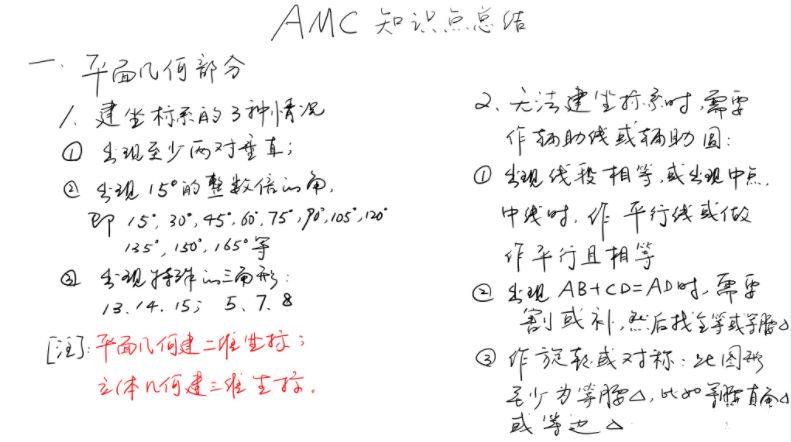 AMC 知识点总结
一. 平面几何部分
1. 建坐标系的3种情况
① 出现至少两对垂直;
② 出现15°的整数倍的角,
即 15°, 30°, 45°, 60°, 75°, 90°, 105°, 120°
135°, 150°, 165°等
③ 出现特殊的三角形:
13. 14. 15; 5. 7. 8
[注]: 平面几何建二维坐标;
立体几何建三维坐标.
2. 无法建坐标系时,需要
作辅助线或辅助圆:
① 出现线段相等,或出现中点.
中线时, 作平行线或做
作平行且相等
② 出现 AB+CD=AD时, 需要
割或补, 然后找全等或等腰△
③ 作旋转或对称: 此图形
至少为等腰△, 比如等腰直角△
或等边△